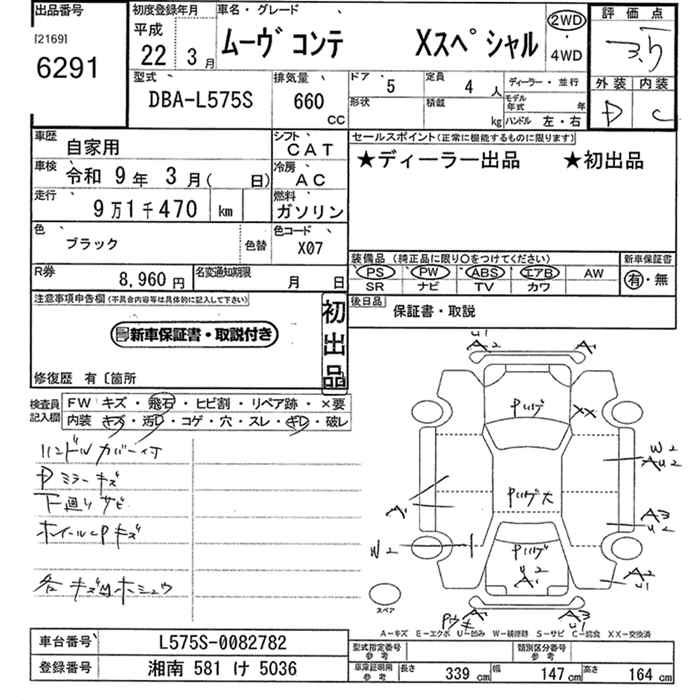 出品番号
[2169]
6291
初度登録年月
平成
22 年 3 月
車名・グレード
ムーヴ コンテ Xスペシャル
2WD
・
4WD
評価点
3.5
外装 内装
D C
型式
DBA-L575S
排気量
660
CC
ドア 5
定員 4 人
形状
積載 kg
ディーラー・並行
モデル年式 年
ハンドル 左・右
車歴 自家用
シフト CAT
車検 令和 9 年 3 月( 日)
冷房 AC
走行 9万1千470 km
燃料 ガソリン
色 ブラック
色替
色コード X07
R券 8,960 円
名変通知期限 月 日
セールスポイント(正常に機能するものに限ります)
★ディーラー出品 ★初出品
装備品(純正品に限り○をつけてください)
新車保証書
PS PW ABS エアB AW
SR ナビ TV カワ
有・無
後日品 保証書・取説
注意事項申告欄(不具合内容等は具体的に記入して下さい)
新車保証書・取説付き
初出品
修復歴 有〔箇所
検査員記入欄
FW キズ・飛石・ヒビ割・リペア跡・×要
内装 キズ・汚レ・コゲ・穴・スレ・キレ・破レ
ハンドルカバー付
Dミラーキズ
下廻りサビ
ホイールCPキズ
各キズ凹ホシュウ
U1
A2
A1
Pいげ
XX
W2
AU2
A1
Pいげ大
A3
U2
W2
Pいげ
U2
A1
A2
U1
スペア
A3
U1
A-キズ E-エクボ U-凹み W-補修跡 S-サビ C-腐食 XX-交換済
車台番号 L575S-0082782
登録番号 湘南 581 け 5036
型式指定番号 参考
類別区分番号 参考
車庫証明用 参考
長さ 339 cm 幅 147 cm 高さ 164 cm